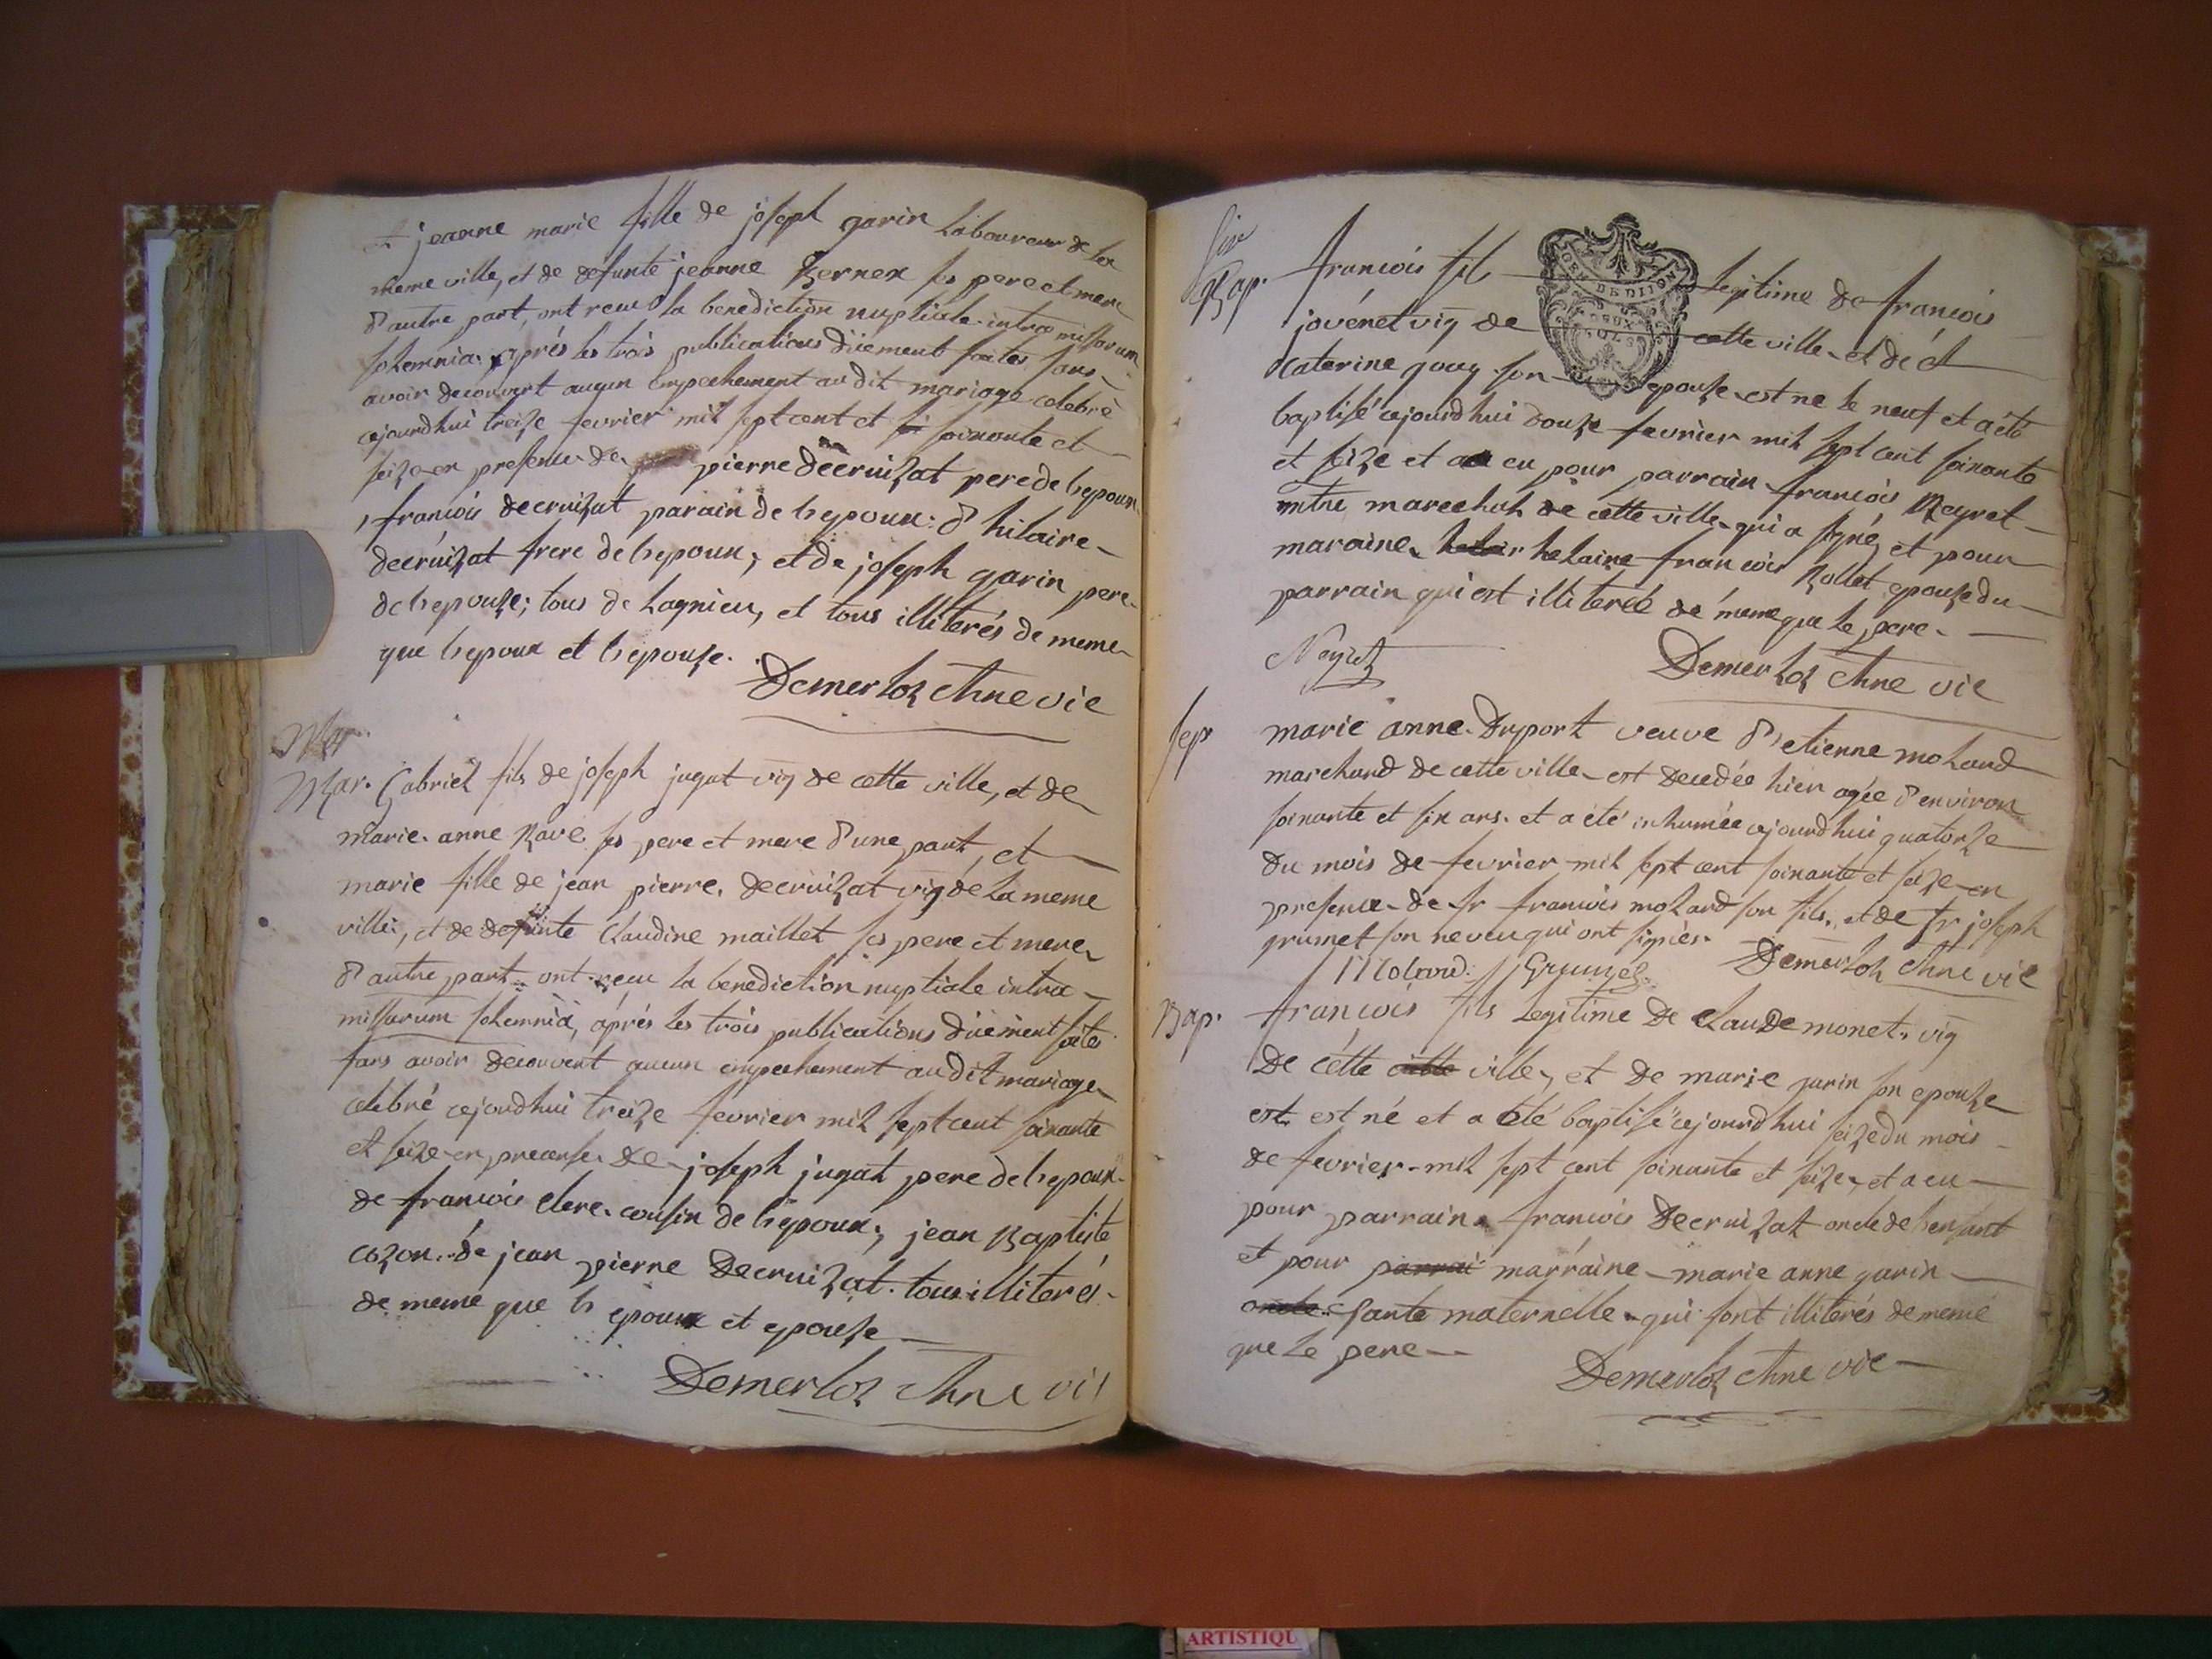 et jeanne marie fille de joseph garin laboureur de la
meme ville, et de defunte jeanne Bernex ses pere et mere
d'autre part, ont recu la benediction nuptiale intra missarum
solemnia. aprés les trois publications düement faites sans
avoir decouvert aucun empechement au dit mariage celebré
cejourdhui treize fevrier mil sept cent et soixante et
seize en presence de pierre decruizat pere de lepoux
, francois decruizat parain de lepoux. d'hilaire
decruizat frere de lepoux, et de joseph garin pere
de lepouze; tous de Lagnieu, et tous illiterés de meme
que lepoux et lepouze.
Demerloz chne vic
Mar
Mar. Gabriel fils de joseph jugat vig de cette ville, et de
marie anne Ravé ses pere et mere d'une part, et
marie fille de jean pierre decruizat vig de la meme
ville, et de defunte Claudine maillet ses pere et mere
d'autre part ont recu la benediction nuptiale intra
missarum solemnia, aprés les trois publications düement faites
sans avoir decouvert aucun empechement au dit mariage
celebré cejourdhui treize fevrier mil sept cent soixante
et seize en presence de joseph jugat pere de lepoux
de francois clerc cousin de l'epoux, jean Baptiste
cozon. de jean pierre Decruizat. tous illiterés
de meme que l'epoux et epouse
Demerloz chne vic
Bap. francois fils legitime de francois
DE DIJON
DEUX
SOLS
jovénet vig de cette ville et de
Caterine gouy son epouze est ne le neuf et a été
baptisé cejourdhui douze fevrier mil sept cent soixante
et seize et a eu pour parrain francois Neyret
mtre marechal de cette ville qui a signé, et pour
maraine helaine francois Rollet epouze du
parrain qui est illiterée de meme que le pere.
Neyret Demerloz chne vic
sep marie anne Duport veuve d'etienne molard
marchand de cette ville est decedée hier agée d'environ
soixante et six ans. et a été inhumée cejourdhui quatorze
du mois de fevrier mil sept cent soixante et seize en
presence de sr francois molard son fils. et de sr joseph
grumet son neveu qui ont signés.
Molard. Grumet Demerloz chne vic
Bap. francois fils legitime De Claude monet. vig
De cette ville, et de marie garin son epouze
est né et a eté baptisé cejourdhui seize du mois
de fevrier mil sept cent soixante et seize, et a eu
pour parrain francois Decruizat oncle de lenfant
et pour parrai marraine marie anne garin
tante maternelle qui sont illiterés de meme
que le pere
Demerloz chne vic
ARTISTIQU